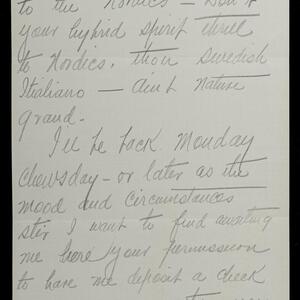 to the Nordics — Don't
your hybrid spirit thrill
to Nordics, thou Swedish
Italiano — aint Nature
grand.
I'll be back Monday
Chewsday — or later as the
mood and circumstances
stir I want to find awaiting
me here your permission
to have me deposit a check